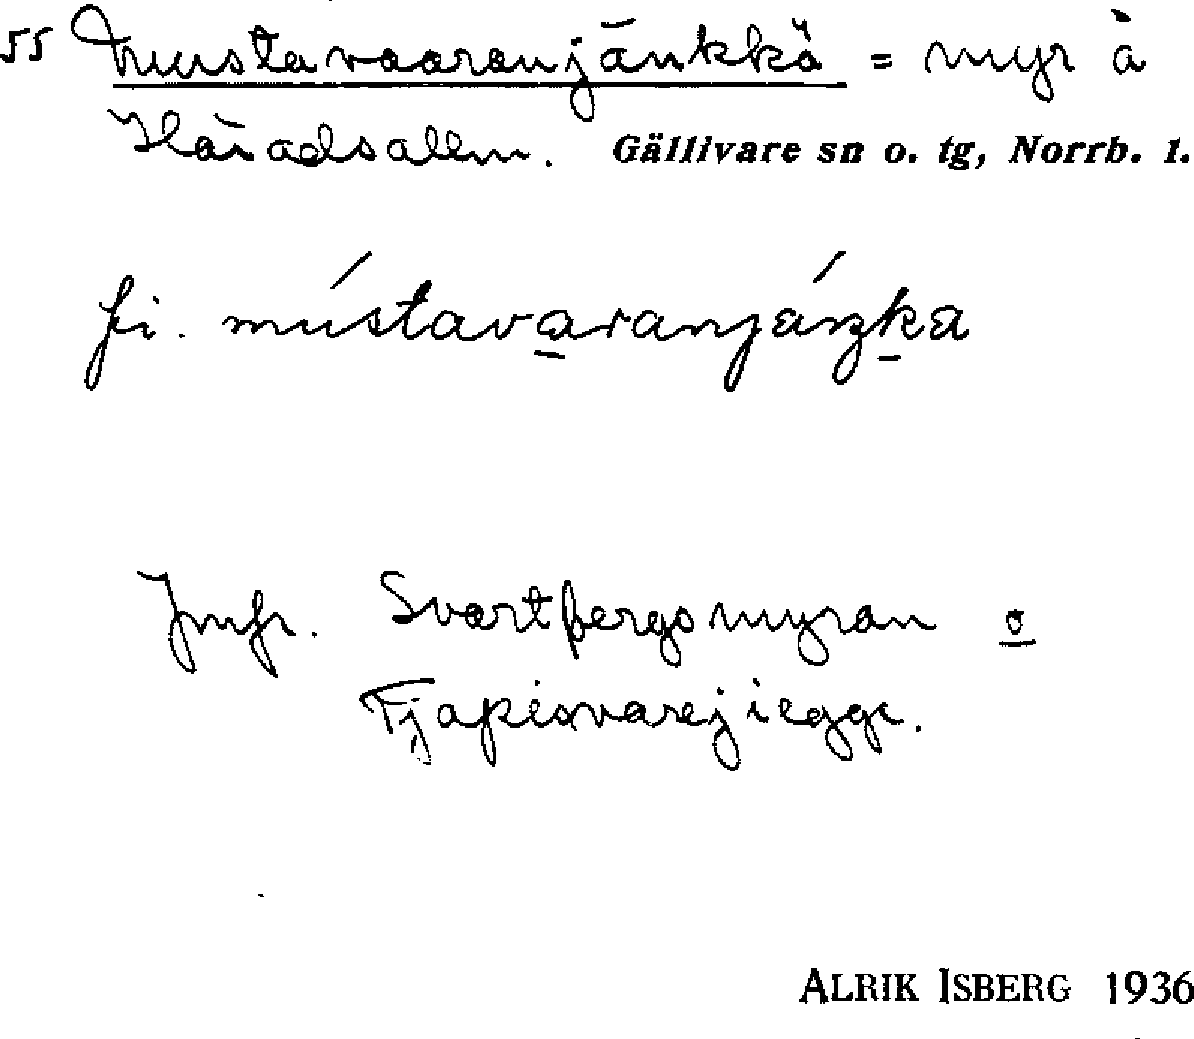 55 Mustavaaranjänkkä = myr å
Häradsallm. Gällivare sn o. tg, Norrb. l.
fi. mústavaranjáŋka
Jmfr. Svartbergsmyran o
Tjapisvarejiegge.
ALRIK ISBERG 1936